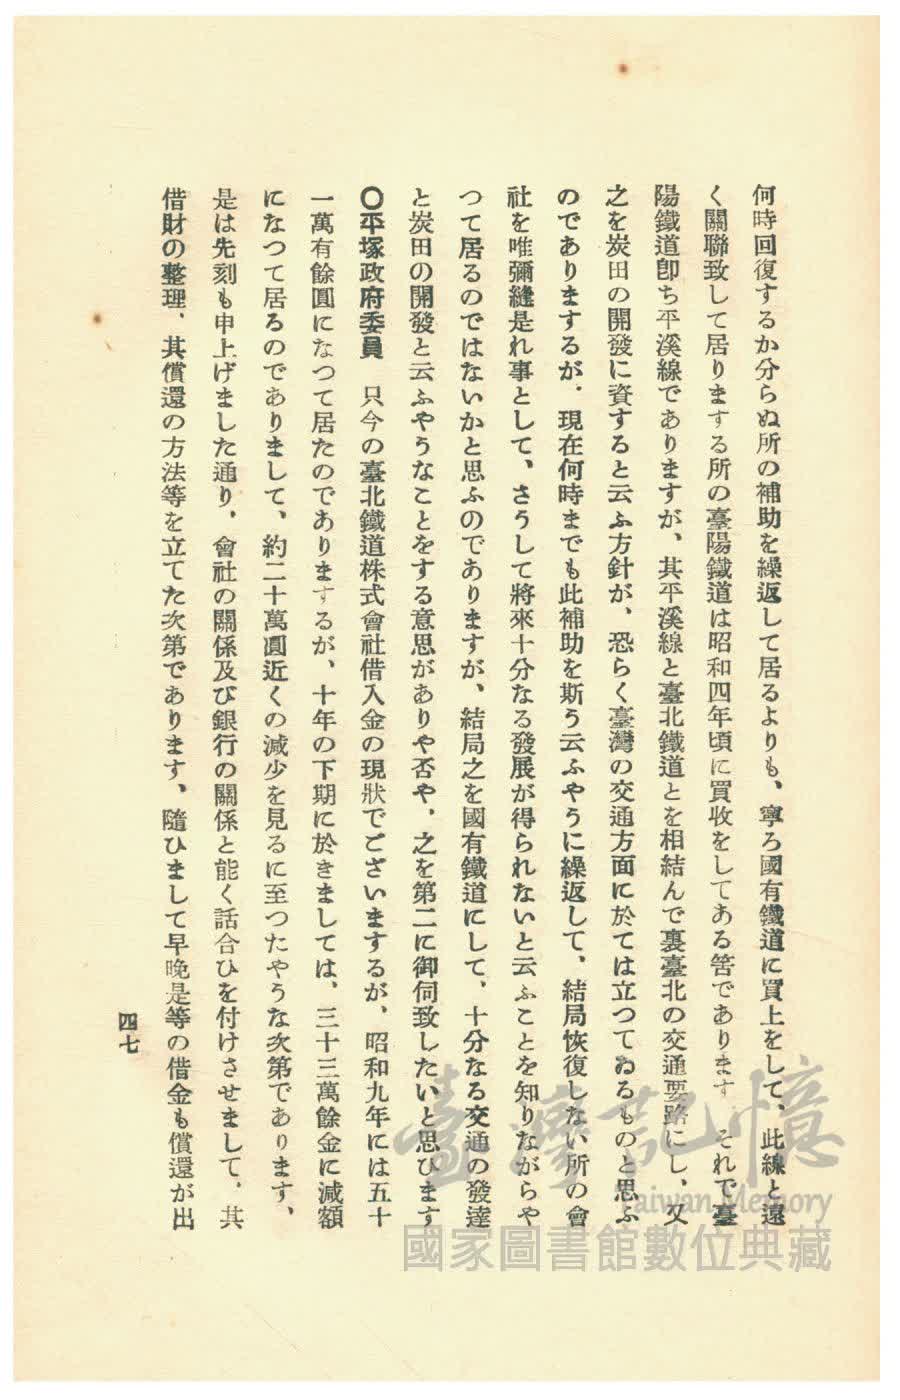 何時回復するか分らぬ所の補助を繰返して居るよりも、寧ろ國有鐵道に買上をして、此線と遠
く關聯致して居りまする所の臺陽鐵道は昭和四年頃に買收をしてある筈であります　それで臺
陽鐵道卽ち平溪線でありますが、其平溪線と臺北鐵道とを相結んで裏臺北の交通要路にし、又
之を炭田の開發に資すると云ふ方針が、恐らく臺灣の交通方面に於ては立つてゐるものと思ふ
のでありまするが、現在何時までも此補助を斯う云ふやうに繰返して、結局恢復しない所の會
社を唯彌縫是れ事として、さうして將來十分なる發展が得られないと云ふことを知りながらや
つて居るのではないかと思ふのでありますが、結局之を國有鐵道にして、十分なる交通の發達
と炭田の開發と云ふやうなことをする意思がありや否や、之を第二に御伺致したいと思ひます
〇平塚政府委員　只今の臺北鐵道株式會社借入金の現狀でございまするが、昭和九年には五十
一萬有餘圓になつて居たのでありまするが、十年の下期に於きましては、三十三萬餘金に減額
になつて居るのでありまして、約二十萬圓近くの減少を見るに至つたやうな次第であります、
是は先刻も申上げました通り、會社の關係及び銀行の關係と能く話合ひを付けさせまして、其
借財の整理、其償還の方法等を立てた次第であります、隨ひまして早晩是等の借金も償還が出
四七
臺灣記憶
Taiwan Memory
國家圖書館數位典藏